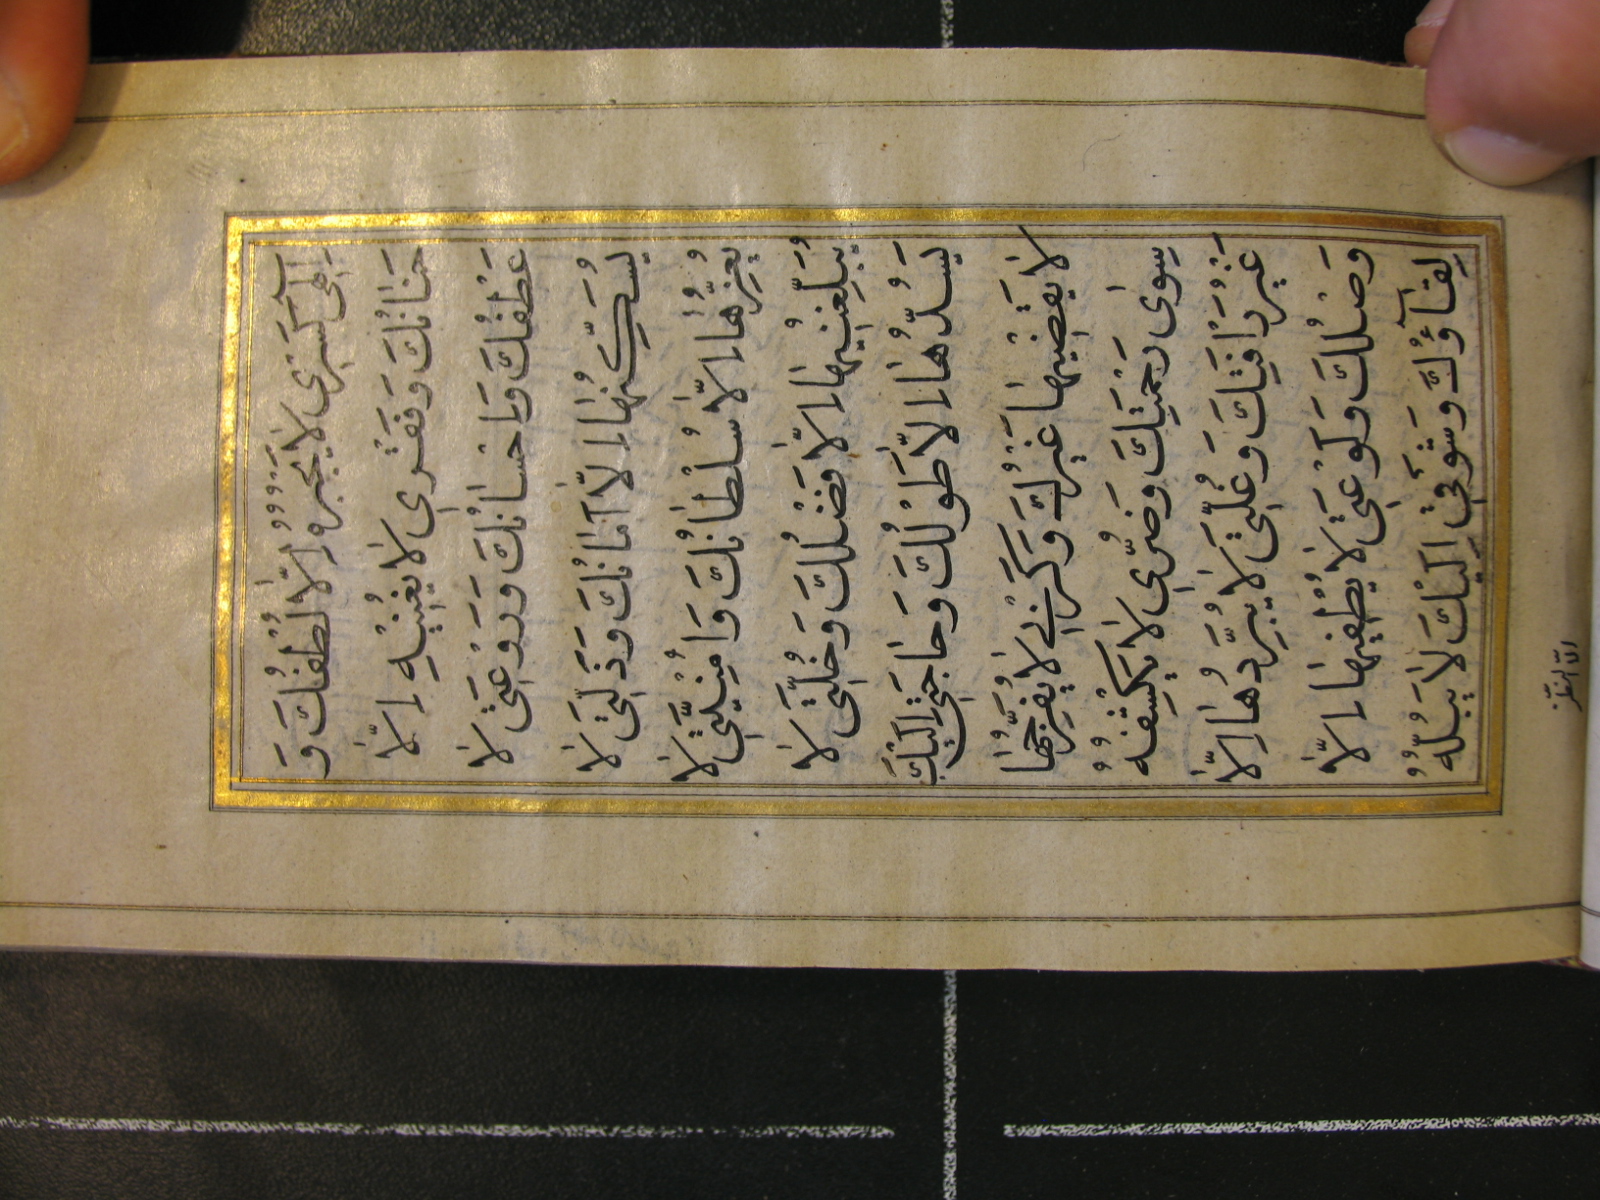 اِلٰهِی كَسْرِی لَا يَجْبُرُهُ اِلَّا لُطْفُكَ وَ
حَنَانُكَ وَفَقْرِي لَا يُغْنِيهِ اِلَّا
عَطْفُكَ وَاِحْسَانُكَ وَرَوْعَتِی لَا
يُسَكِّنُهَا اِلَّا اَمَانُكَ وَذِلَّتِی لَا
يُعِزُّهَا اِلَّا سُلْطَانُكَ وَاُمْنِيَّتِی لَا
يُبَلِّغُنِيهَا اِلَّا فَضْلُكَ وَخَلَّتِی لَا
يَسُدُّهَا اِلَّا طَوْلُكَ وَحَاجَتِی اِلَيْكَ
لَا يَقْضِيهَا غَيْرُكَ وَكَرْبِي لَا يُفَرِّجُهَا
سِوٰی رَحْمَتِكَ وَضُرِّي لَا يَكْشِفُهُ
غَيْرُ رَافَتِكَ وَغُلَّتِی لَا يُبَرِّدُهَا اِلَّا
وَصْلُكَ وَلَوْعَتِی لَا يُطْفِيهَا اِلَّا
لِقَآؤُكَ وَشَوْقِی اِلَيْكَ لَا يَبُلُّهُ
اِلَّا النَّظَرُ